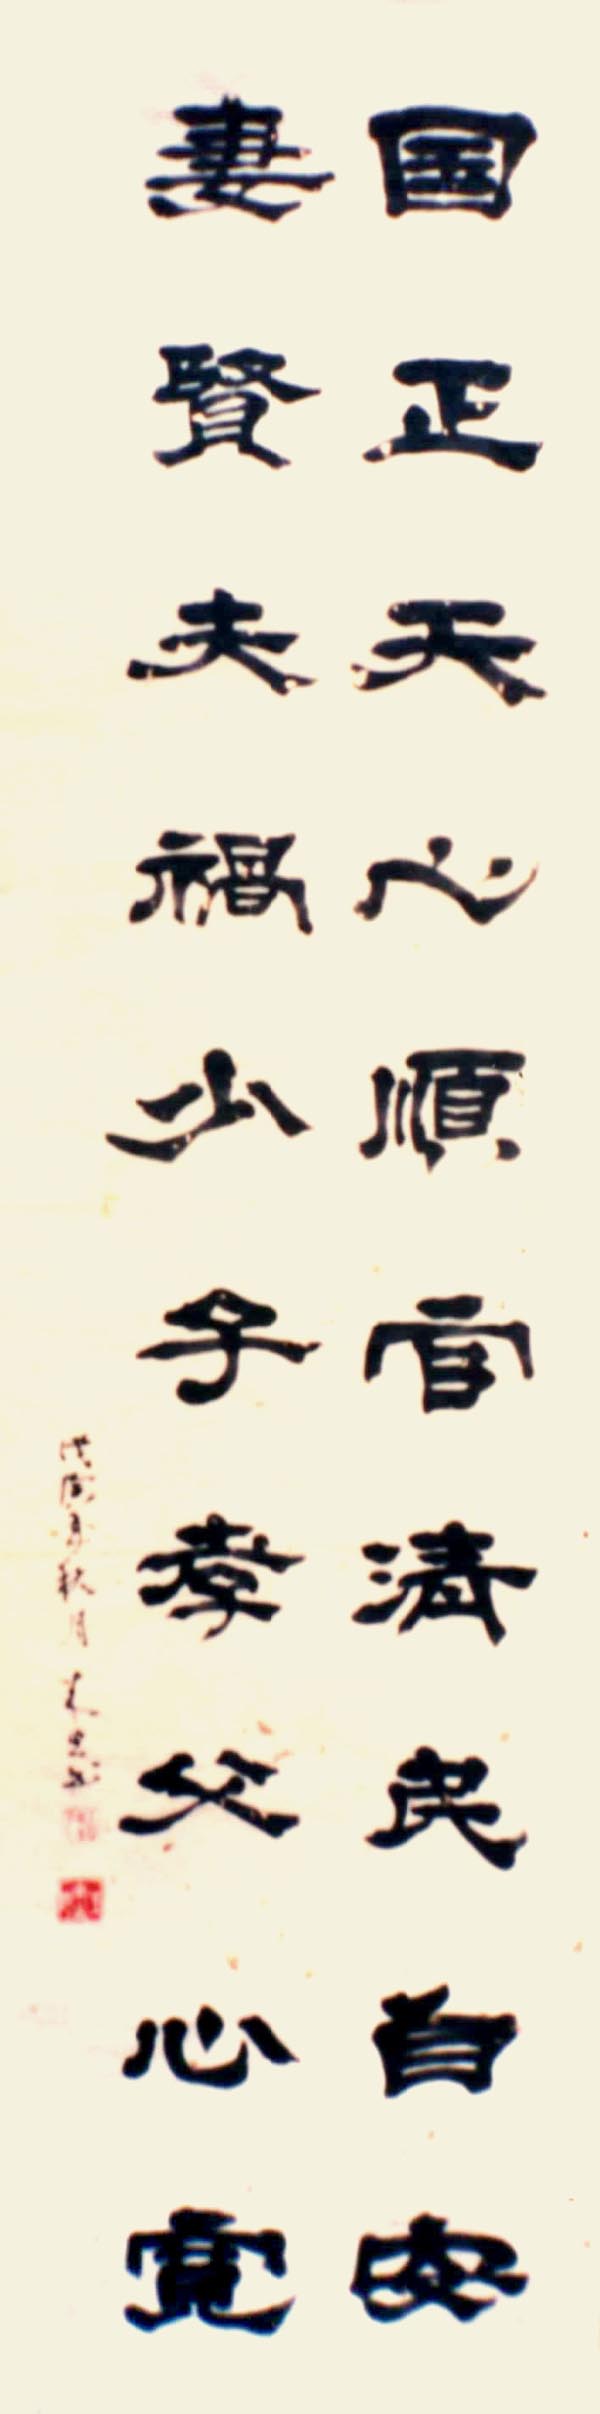 国正天心順官清民自安
妻賢夫禍少子孝父心寬
秋月